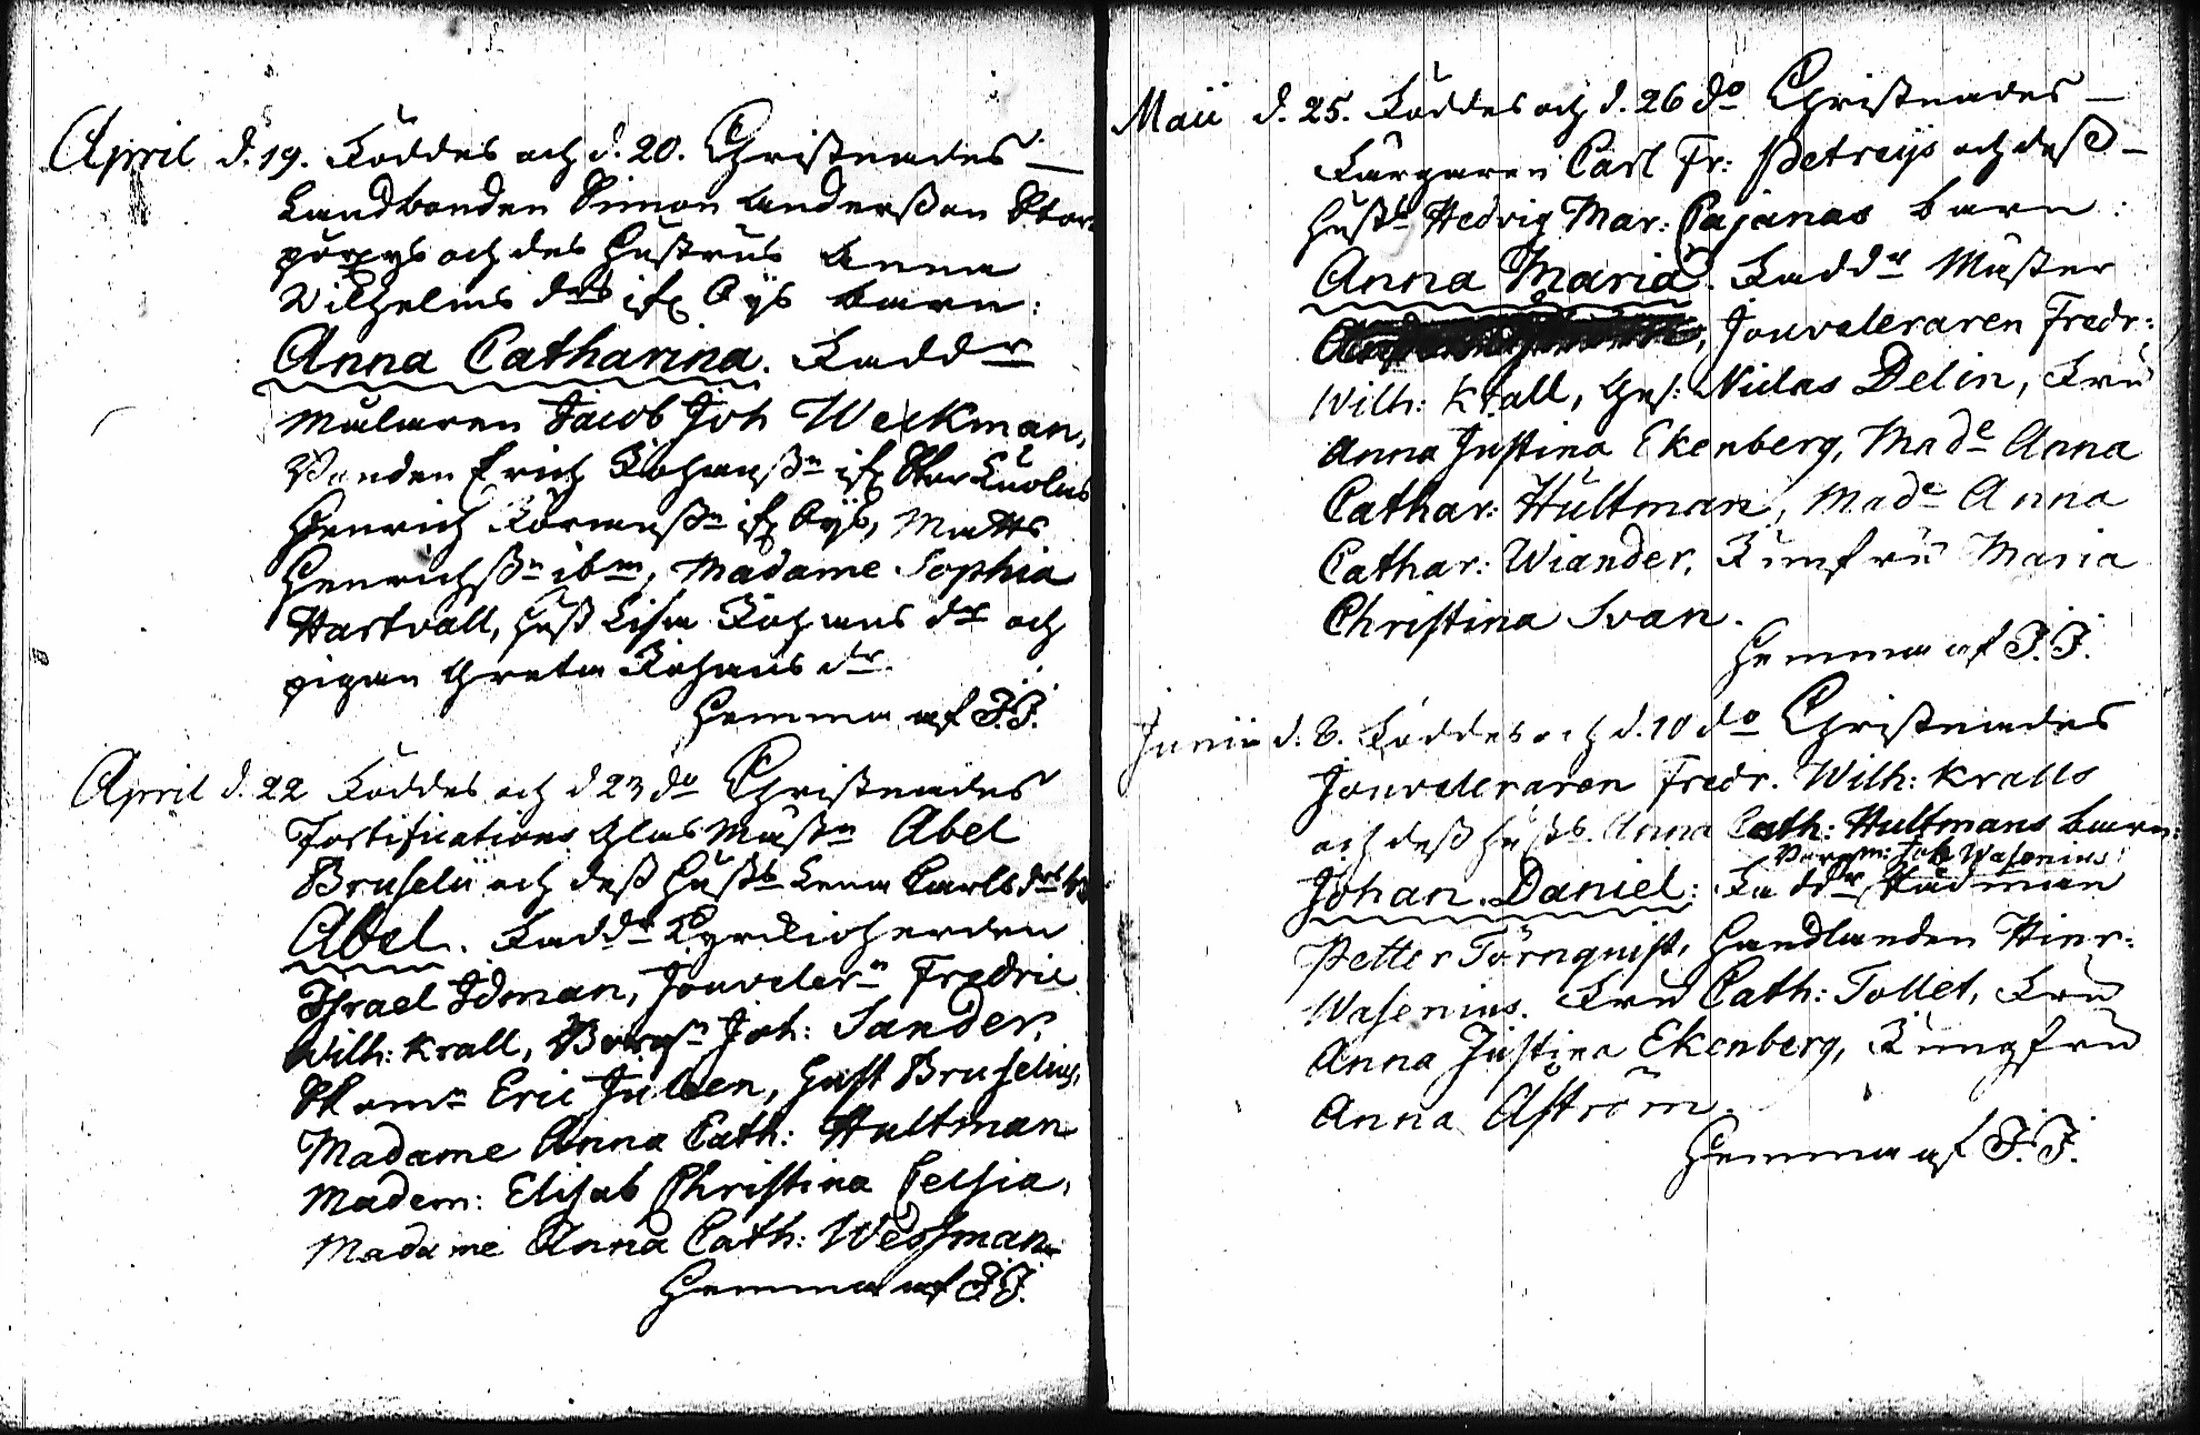 April d. 19. Föddes och d. 20. Christnades
Landbonden Simon Andersson Stor
pörxys och des Hustrus Anna
Wilhelms drs ifr. Bys barn:
Anna Catharina. Faddr
Målaren Jacob Joh Weckman,
Bonden Erich Johanssn ifr.
Henrich Göransn ifr. Bys, Matts
Henrichssn ibm, Madame Sophia
Hartvall, Hust Lisa Johans dr och
pigan Greta Johans dr.
Hemma af J.J.
April d. 22 Föddes och d 23 do Christnades
Fortifications Glas Mästn Abel
Bruselii och dess Hustrs Lena Carls drs b
Abel. Faddr Kyrckioherden
Israel Idman, Jouvelern Fredric
Wilh: Krall, Borgn Joh: Sander,
Eric Julben, Gust Bruselius,
Madame Anna Cath: Hultman
Madem: Elisab Christina Celsia,
Madame Anna Cath: Wessman.
Hemma af J.J.
Maii d. 25. Föddes och d. 26 do Christnades
Färgaren Carl Fr: Petreijs och dess
Hustr Hedvig Mar: Pajanas barn:
Anna Maria. Faddr Mäster
Jouveleraren Fredr:
Wilh: Krall, Ges: Niclas Delin, Fru
Anna Justina Ekenberg, Made Anna
Cathar: Hultman, Made Anna
Cathar: Wiander, Jumfru Maria
Christina Svan.
Hemma af J.J.
Junii d. 8. Föddes och d. 10 do Christnades
Jouveleraren Fredr. Wilh: Kralls
och dess Hustrs. Anna Cath: Hultmans barn:
Borgm: Job Wasenius
Johan Daniel: Faddr Rådman
Petter Törnquist, Handlanden Hier:
Wasenius. Fru Cath: Tollet, Fru
Anna Justina Ekenberg, Jungfru
Anna Aström.
Hemma af J.J.